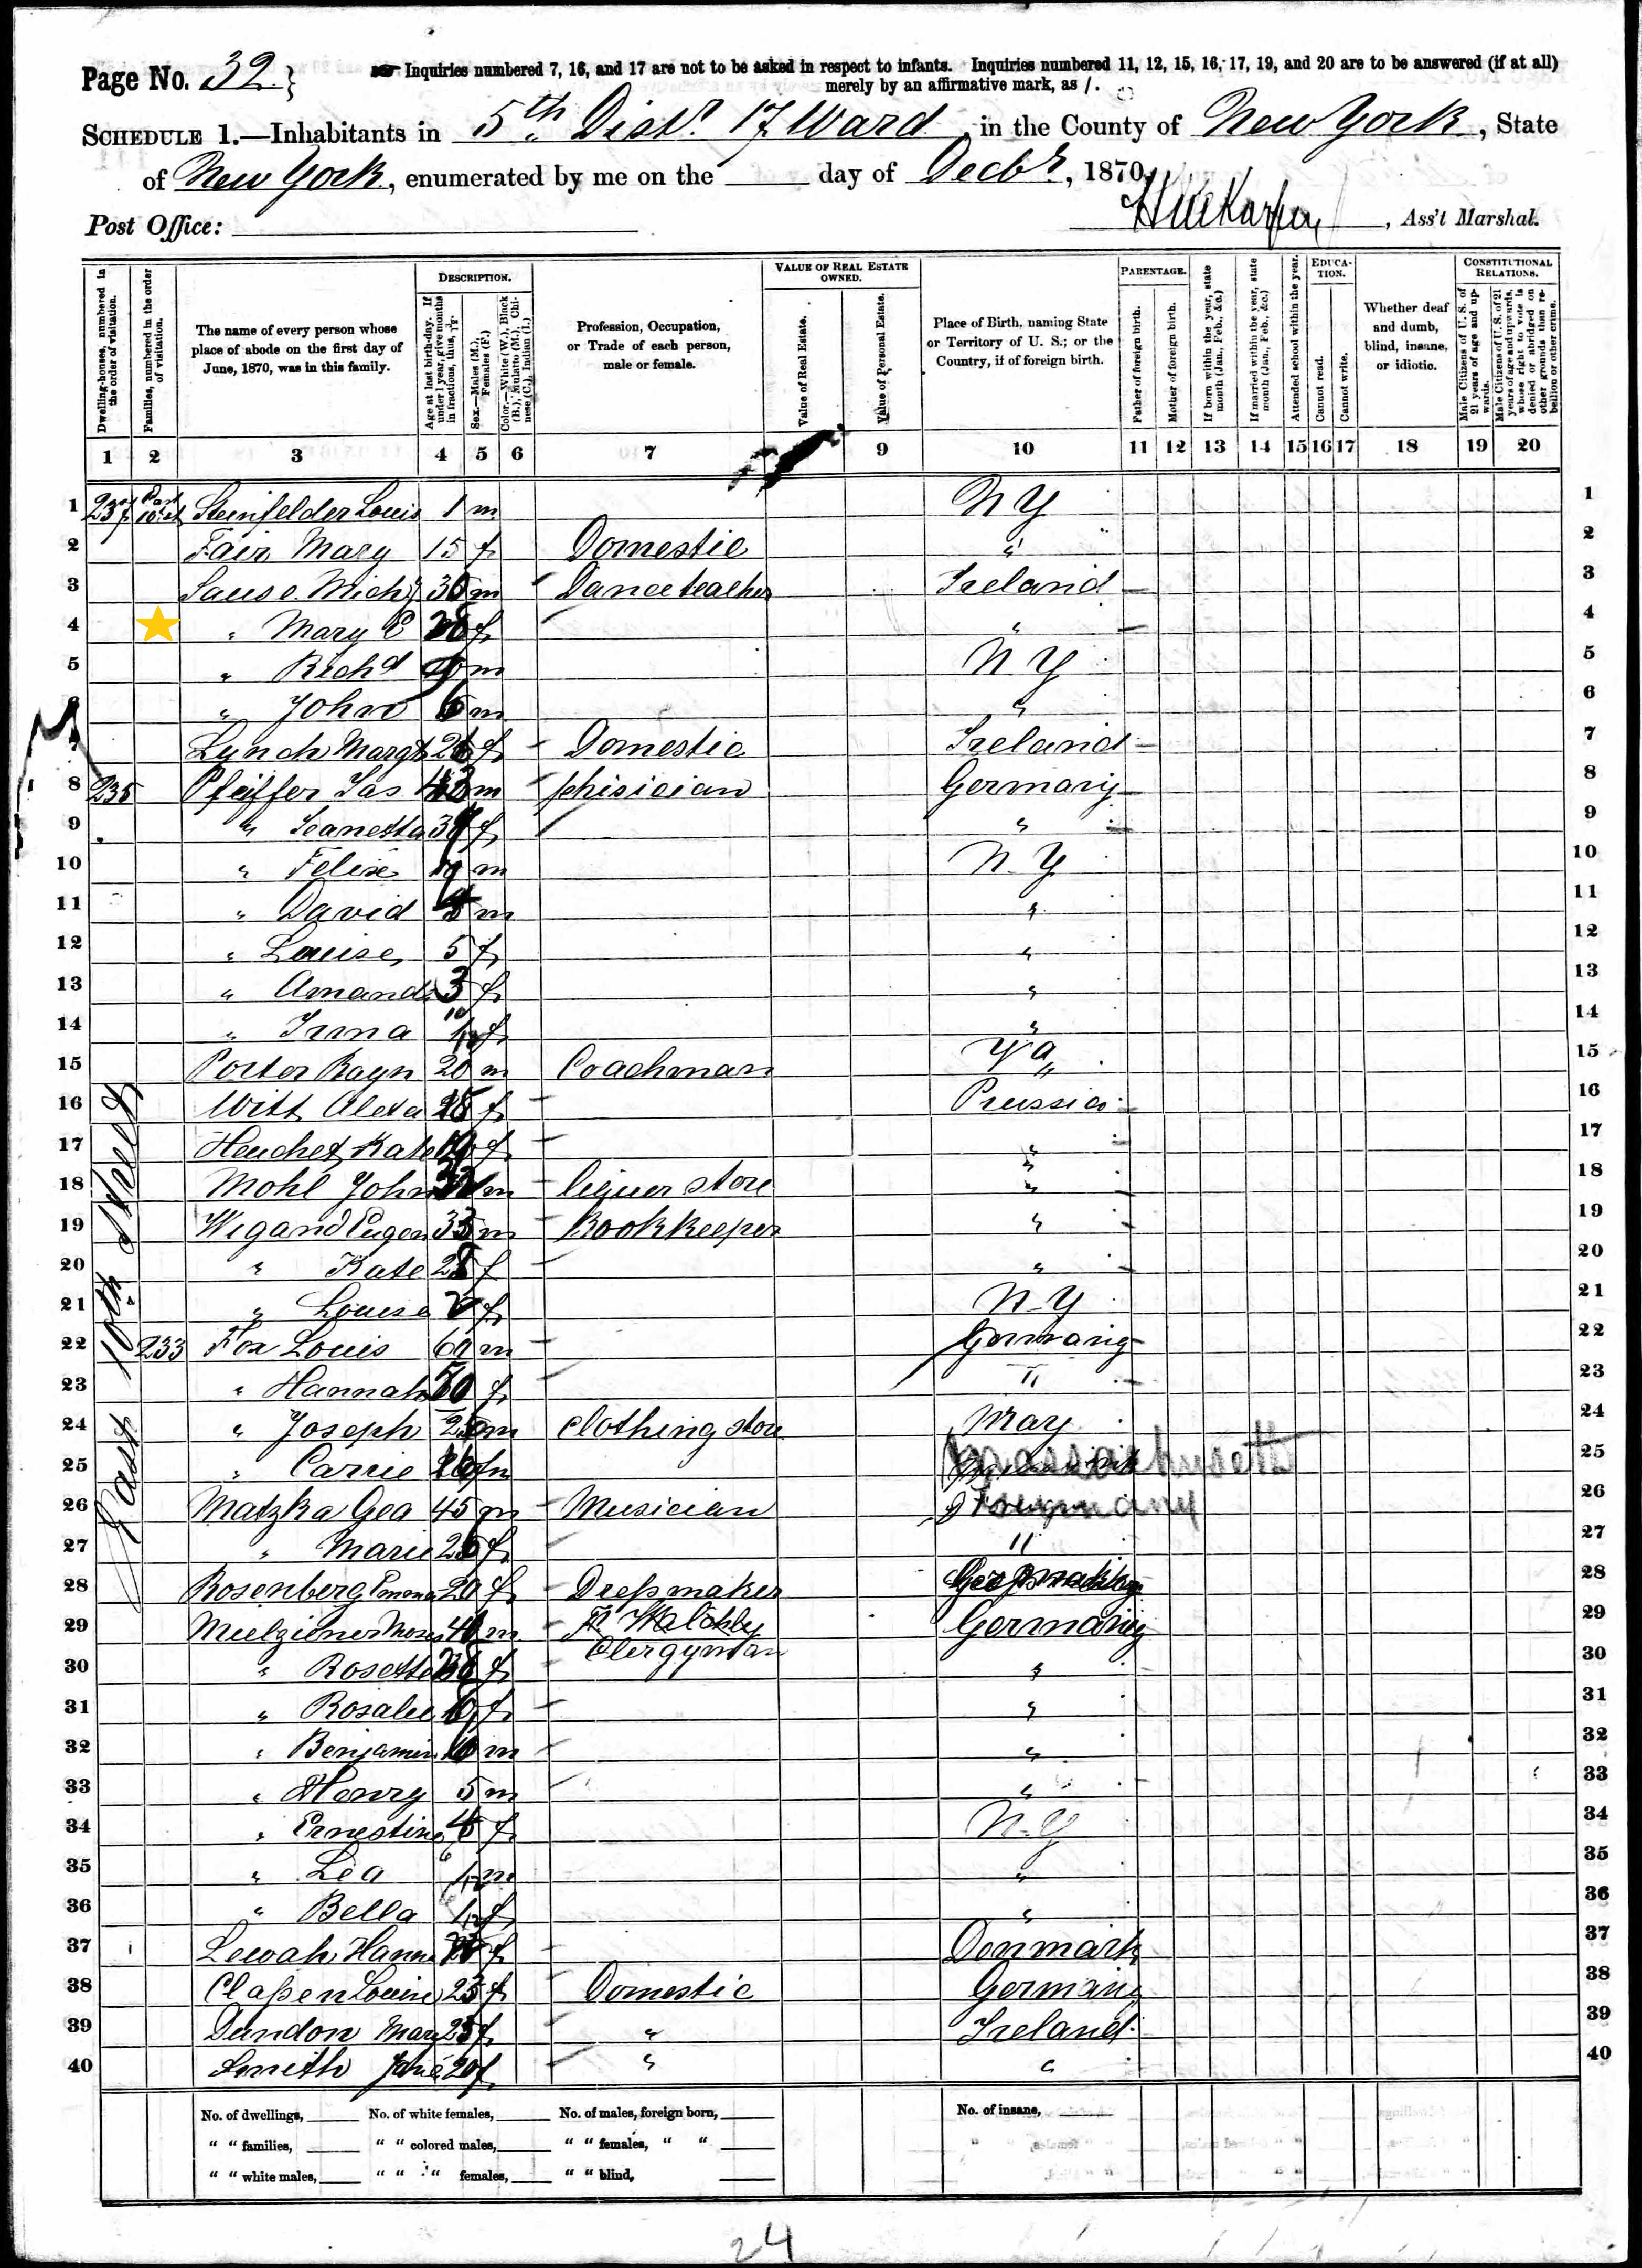 Page No. 32 } Inquiries numbered 7, 16, and 17 are not to be asked in respect to infants. Inquiries numbered 11, 12, 15, 16, 17, 19, and 20 are to be answered (if at all)
merely by an affirmative mark, as /.
SCHEDULE 1.—Inhabitants in 5th Dist. 17 Ward, in the County of New York, State
of New York, enumerated by me on the ____ day of Decbr, 1870.
Post Office: ____ , Ass't Marshal.
Dwelling-houses, numbered in the order of visitation.
Families, numbered in the order of visitation.
The name of every person whose place of abode on the first day of June, 1870, was in this family.
DESCRIPTION.
Age at last birth-day. If under 1 year, give months in fractions, thus, 3/12.
Sex.—Males (M.), Females (F.)
Color.—White (W.), Black (B.), Mulatto (M.), Chinese (C.), Indian (I.)
Profession, Occupation, or Trade of each person, male or female.
VALUE OF REAL ESTATE OWNED.
Value of Real Estate.
Value of Personal Estate.
Place of Birth, naming State or Territory of U. S.; or the Country, if of foreign birth.
PARENTAGE.
Father of foreign birth.
Mother of foreign birth.
If born within the year, state month (Jan., Feb., &c.)
If married within the year, state month (Jan., Feb., &c.)
Attended school within the year.
EDUCATION.
Cannot read.
Cannot write.
Whether deaf and dumb, blind, insane, or idiotic.
CONSTITUTIONAL RELATIONS.
Male Citizens of U. S. of 21 years of age and upwards.
Male Citizens of U. S. of 21 years of age and upwards, whose right to vote is denied or abridged on other grounds than rebellion or other crime.
1 2 3 4 5 6 7 9 10 11 12 13 14 15 16 17 18 19 20
1 237 Steinfelder Louis 1 m N Y 1
2 Fair Mary 15 f Domestic " 2
3 Sause Mich 30 m Dance teacher Ireland 3
4 " Mary E f " 4
5 " Richd m N Y 5
6 " John m " 6
7 Lynch Margt f Domestic Ireland 7
8 235 Pfeiffer Jas 43 m phisician Germany 8
9 " Jeanetta f " 9
10 " Felix m N Y 10
11 " David m " 11
12 " Louise 5 f " 12
13 " Amanda 3 f " 13
14 " Irma 10/12 f " 14
15 Porter Rayn 20 m Coachman Va 15
16 Witt Alexa f Prussia 16
17 Kate f " 17
18 Mohl John m liquer store " 18
19 Wigand Eugen m Bookkeeper " 19
20 " Kate f " 20
21 " Louisa f N-Y 21
22 233 Fox Louis 60 m Germany 22
23 " Hannah 50 f " 23
24 " Joseph m Clothing store 24
25 " Carrie f Massachusett 25
26 Matzka Geo 45 m Musician Germany 26
27 " Marie f " 27
28 Rosenberg Emma 20 f Dressmaker 28
29 Mielziener Moses m Germany 29
30 " Rosette f Clergyman " 30
31 " Rosalie f " 31
32 " Benjamin m " 32
33 " Henry 5 m " 33
34 " Ernestine f N-Y 34
35 " Lea m " 35
36 " Bella f " 36
37 Hanna f Denmark 37
38 Clasen Louise 23 f Domestic Germany 38
39 Dundon Mary 25 f " Ireland 39
40 Smith Jane 20 f " " 40
East 10th Street
No. of dwellings, ____ No. of white females, ____ No. of males, foreign born, ____ No. of insane, ____
" " families, ____ " " colored males, ____ " " females, " " ____
" " white males, ____ " " " females, ____ " " blind, ____
24